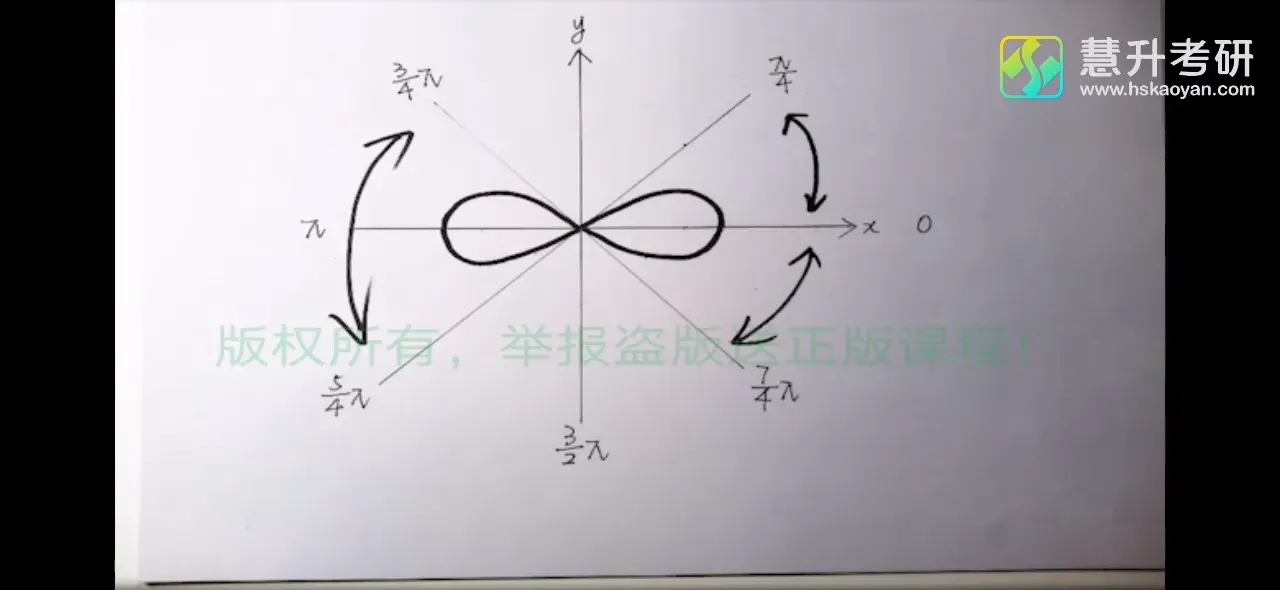 慧升考研
www.hskaoyan.com
y
3/4 π
π/4
π
x
0
版权所有，举报盗版送正版课程！
5/4 π
7/4 π
3/2 π